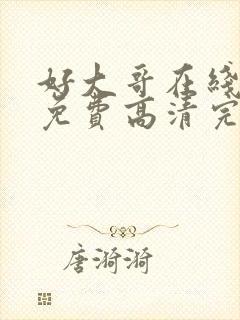 好大哥在綫
免費高清完
唐漪漪